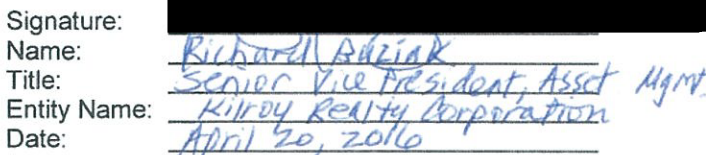 Signature:
Name: Richard Buziak
Title: Senior Vice President, Asset Mgmt.
Entity Name: Kilroy Realty Corporation
Date: April 20, 2016